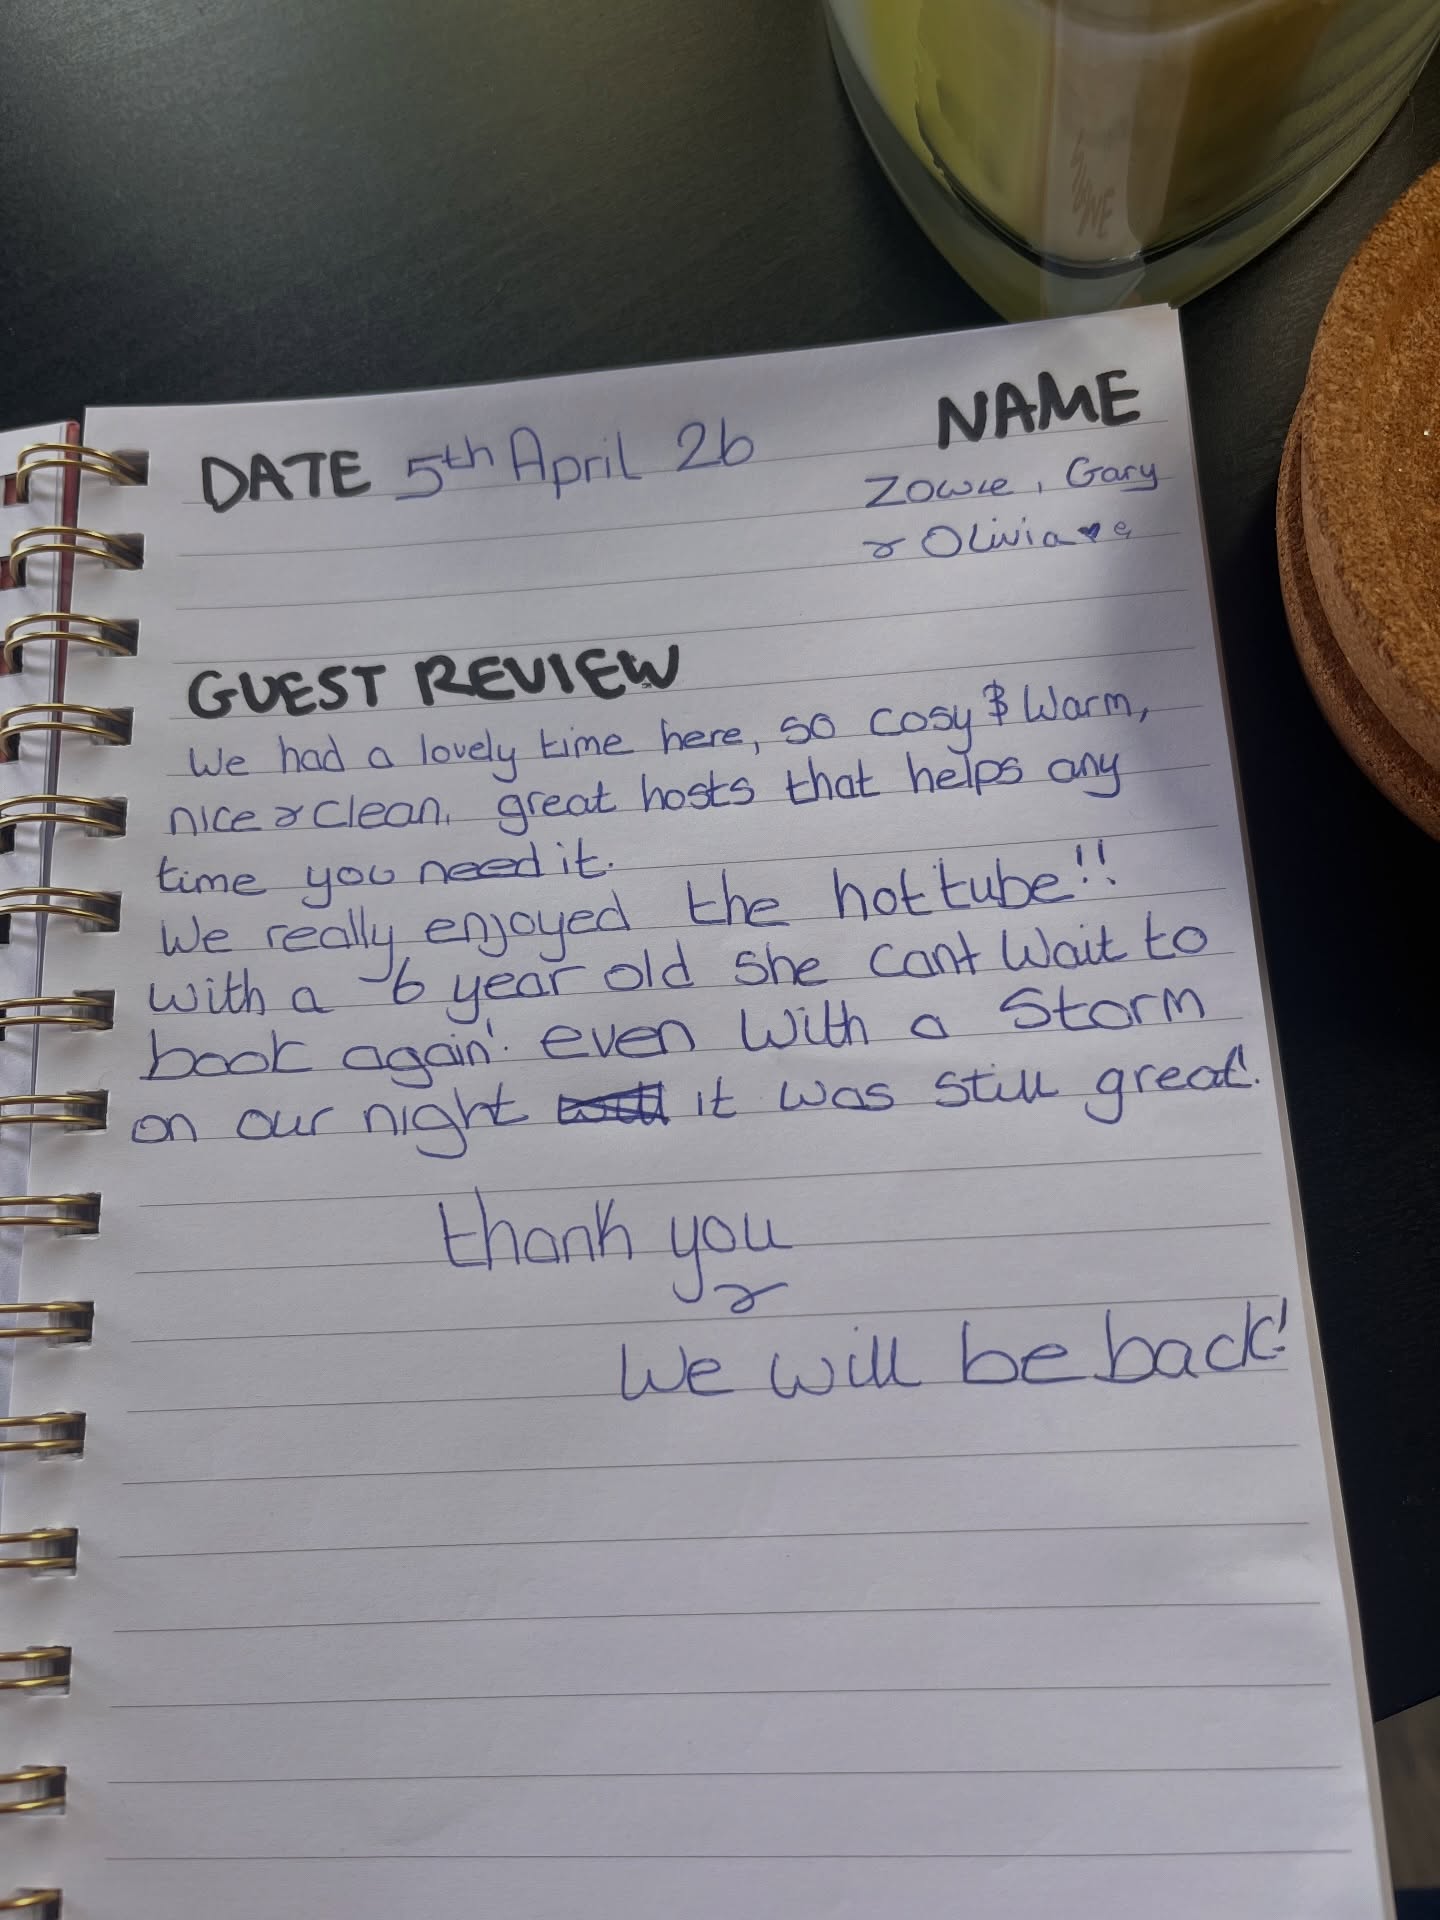 DATE 5th April 26
NAME
Zowie, Gary
& Olivia ♥
GUEST REVIEW
We had a lovely time here, so cosy & Warm,
nice & clean, great hosts that helps any
time you need it.
We really enjoyed the hot tube!!
With a 6 year old she cant Wait to
book again! even With a Storm
on our night it was still great!
thank you
&
We will be back!